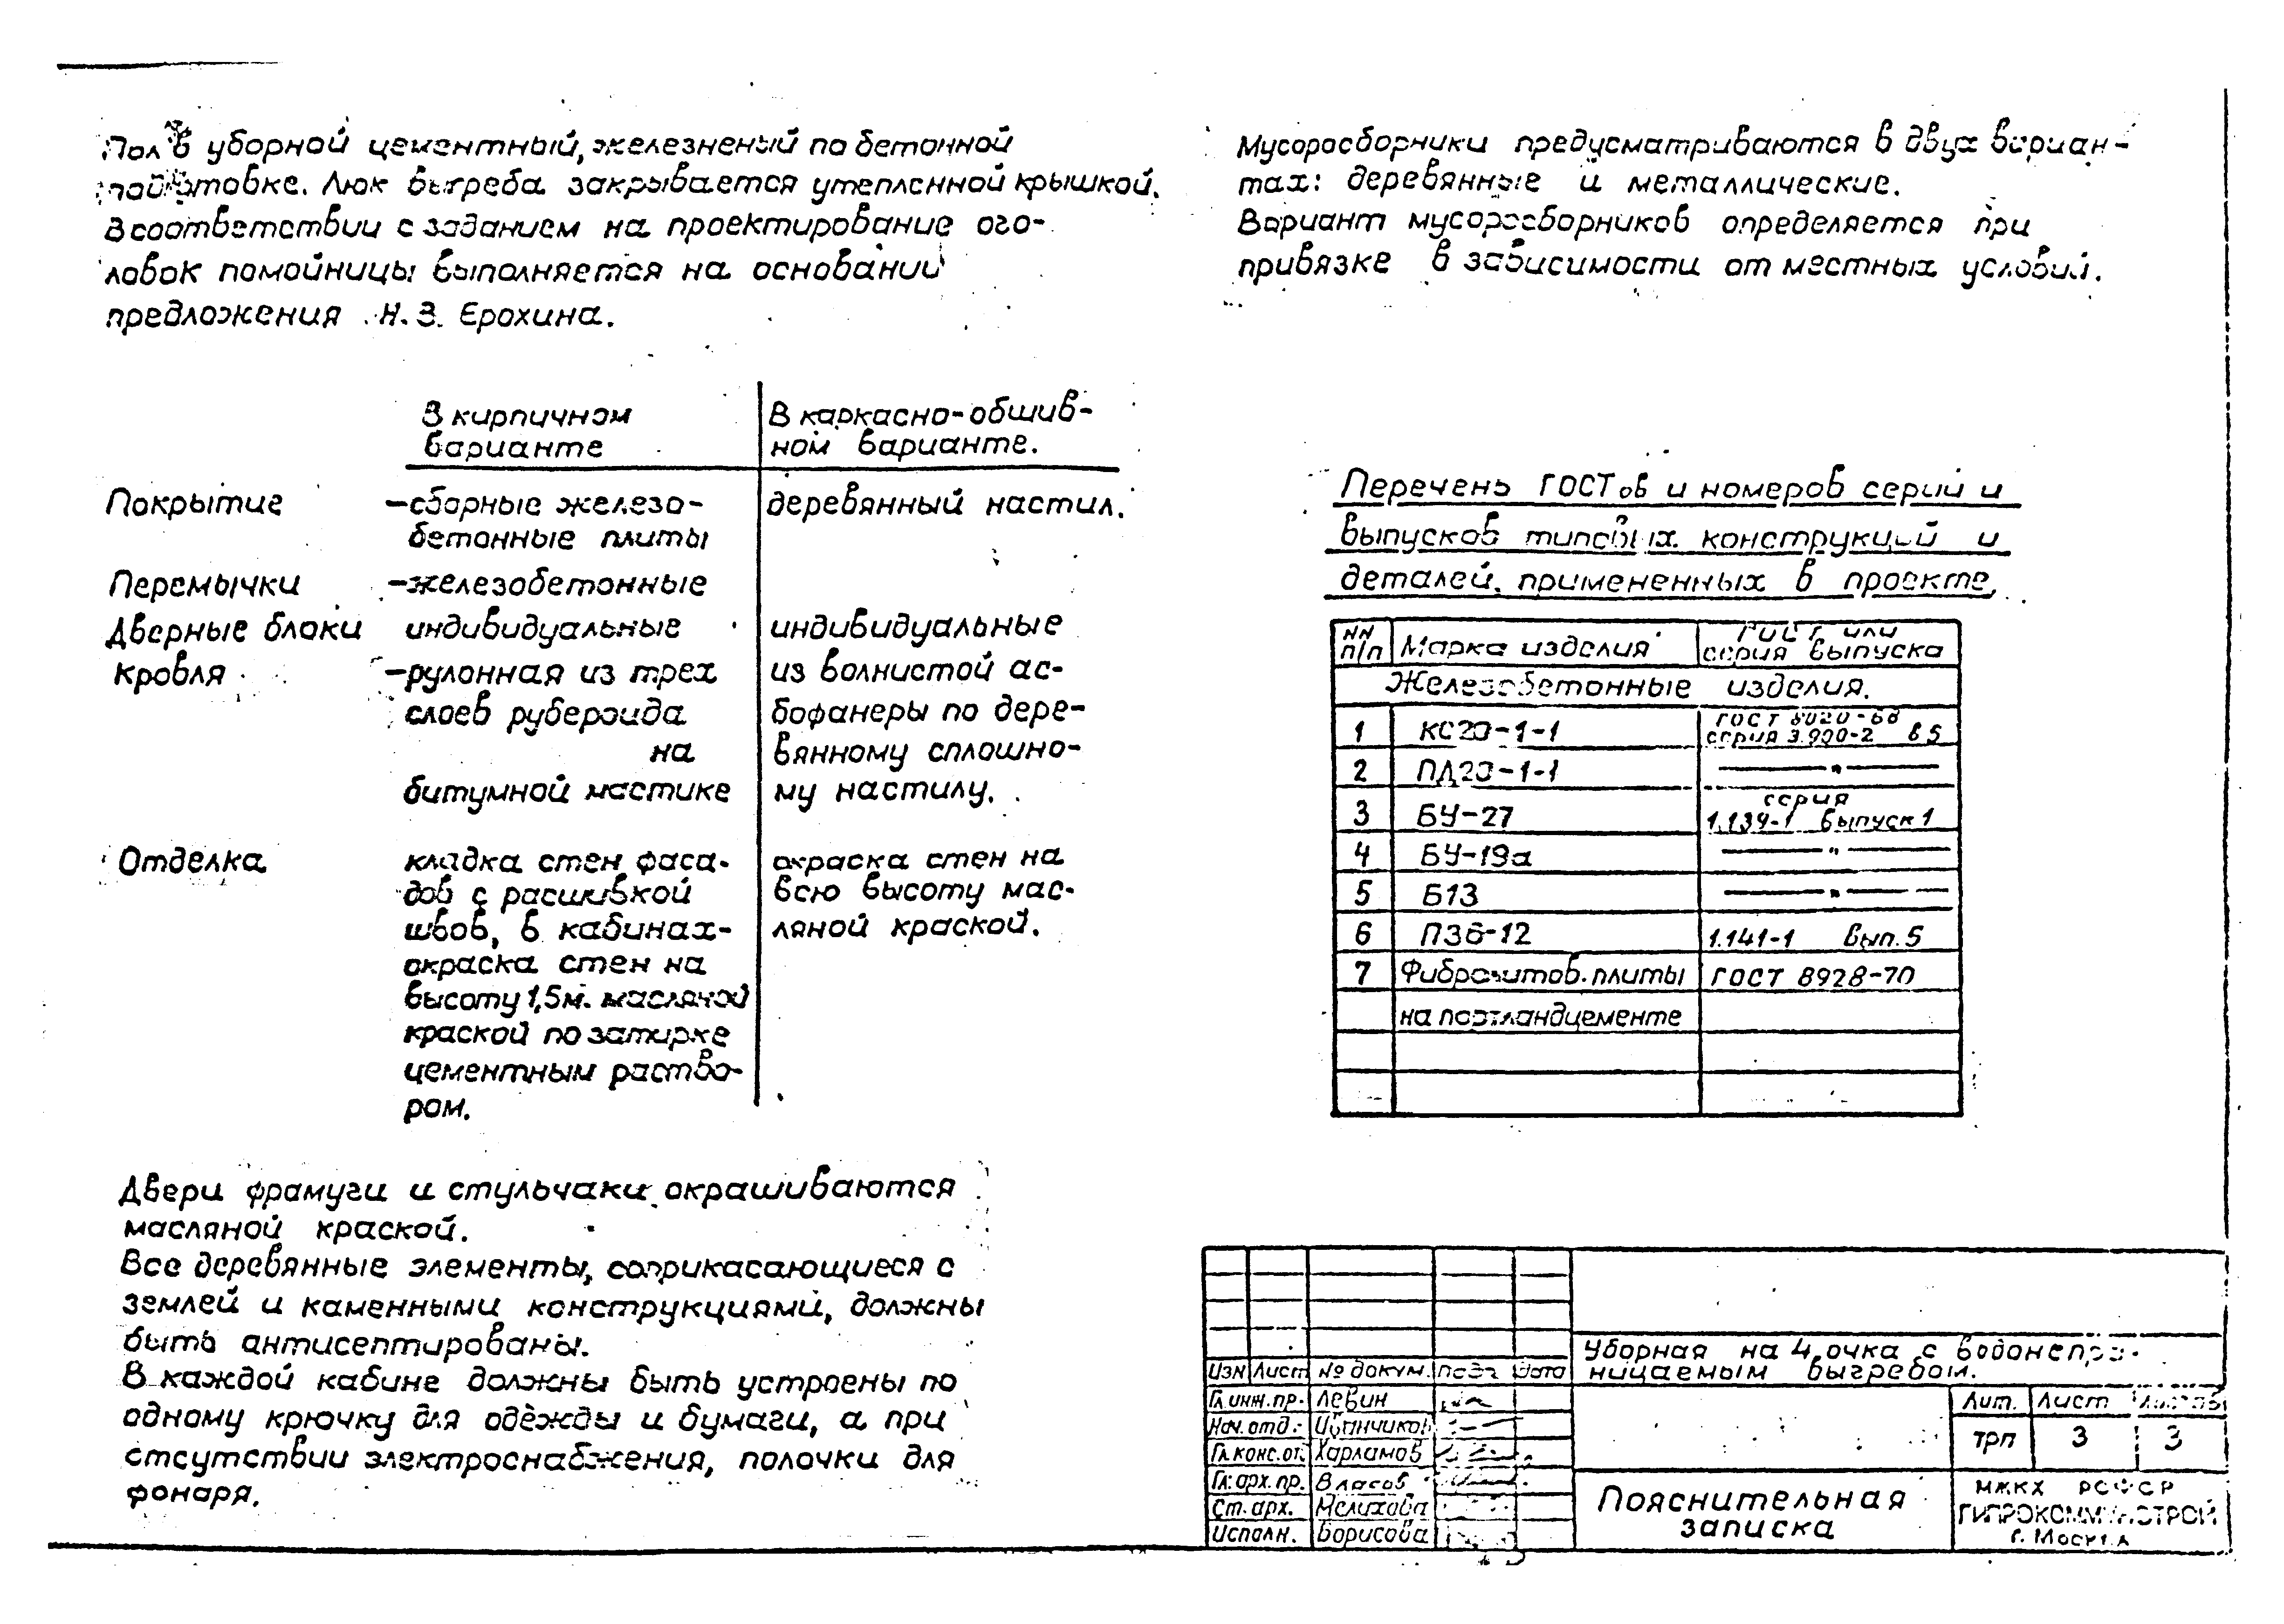 Пол в уборной цементный, железненый по бетонной
подготовке. Люк выгреба закрывается утепленной крышкой.
В соответствии с заданием на проектирование ого-
ловок помойницы выполняется на основании
предложения Н. З. Ерохина.
В кирпичном
варианте
В каркасно-обшив-
ном варианте.
Покрытие
-сборные железо-
бетонные плиты
деревянный настил.
Перемычки
-железобетонные
Дверные блоки
индивидуальные
индивидуальные
Кровля
-рулонная из трех
слоев рубероида
на
битумной мастике
из волнистой ас-
бофанеры по дере-
вянному сплошно-
му настилу.
Отделка
кладка стен фаса-
дов с расшивкой
швов, в кабинах-
окраска стен на
высоту 1,5м. масляной
краской по затирке
цементным раство-
ром.
окраска стен на
всю высоту мас-
ляной краской.
Двери фрамуги и стульчаки окрашиваются
масляной краской.
Все деревянные элементы, соприкасающиеся с
землей и каменными конструкциями, должны
быть антисептированы.
В каждой кабине должны быть устроены по
одному крючку для одежды и бумаги, а при
отсутствии электроснабжения, полочки для
фонаря.
Мусоросборники предусматриваются в двух вариан-
тах: деревянные и металлические.
Вариант мусоросборников определяется при
привязке в зависимости от местных условий.
Перечень ГОСТов и номеров серий и
выпусков типовых конструкций и
деталей, примененных в проекте.
НН п/п Марка изделия ГОСТ или серия выпуска
Железобетонные изделия.
1 КС20-1-1 ГОСТ 8020-68 серия 3.900-2 в 5
2 ПД20-1-1 — " —
3 БУ-27 серия 1.139-1 выпуск 1
4 БУ-19а — " —
5 Б13 — " —
6 П36-12 1.141-1 вып. 5
7 Фибролитов. плиты ГОСТ 8928-70
на портландцементе
Уборная на 4 очка с водонепро-
ницаемым выгребом.
Изм Лист № докум. Подп Дата
Гл. инж. пр. Левин
Нач. отд. Иванчиков
Гл. конс. от. Харламов
Гл. арх. пр. Власов
Ст. арх. Мелихова
Исполн. Борисова
Лит. Лист Листов
ТРП 3 3
Пояснительная
записка
МЖКХ РСФСР
ГИПРОКОММУНСТРОЙ
г. Москва